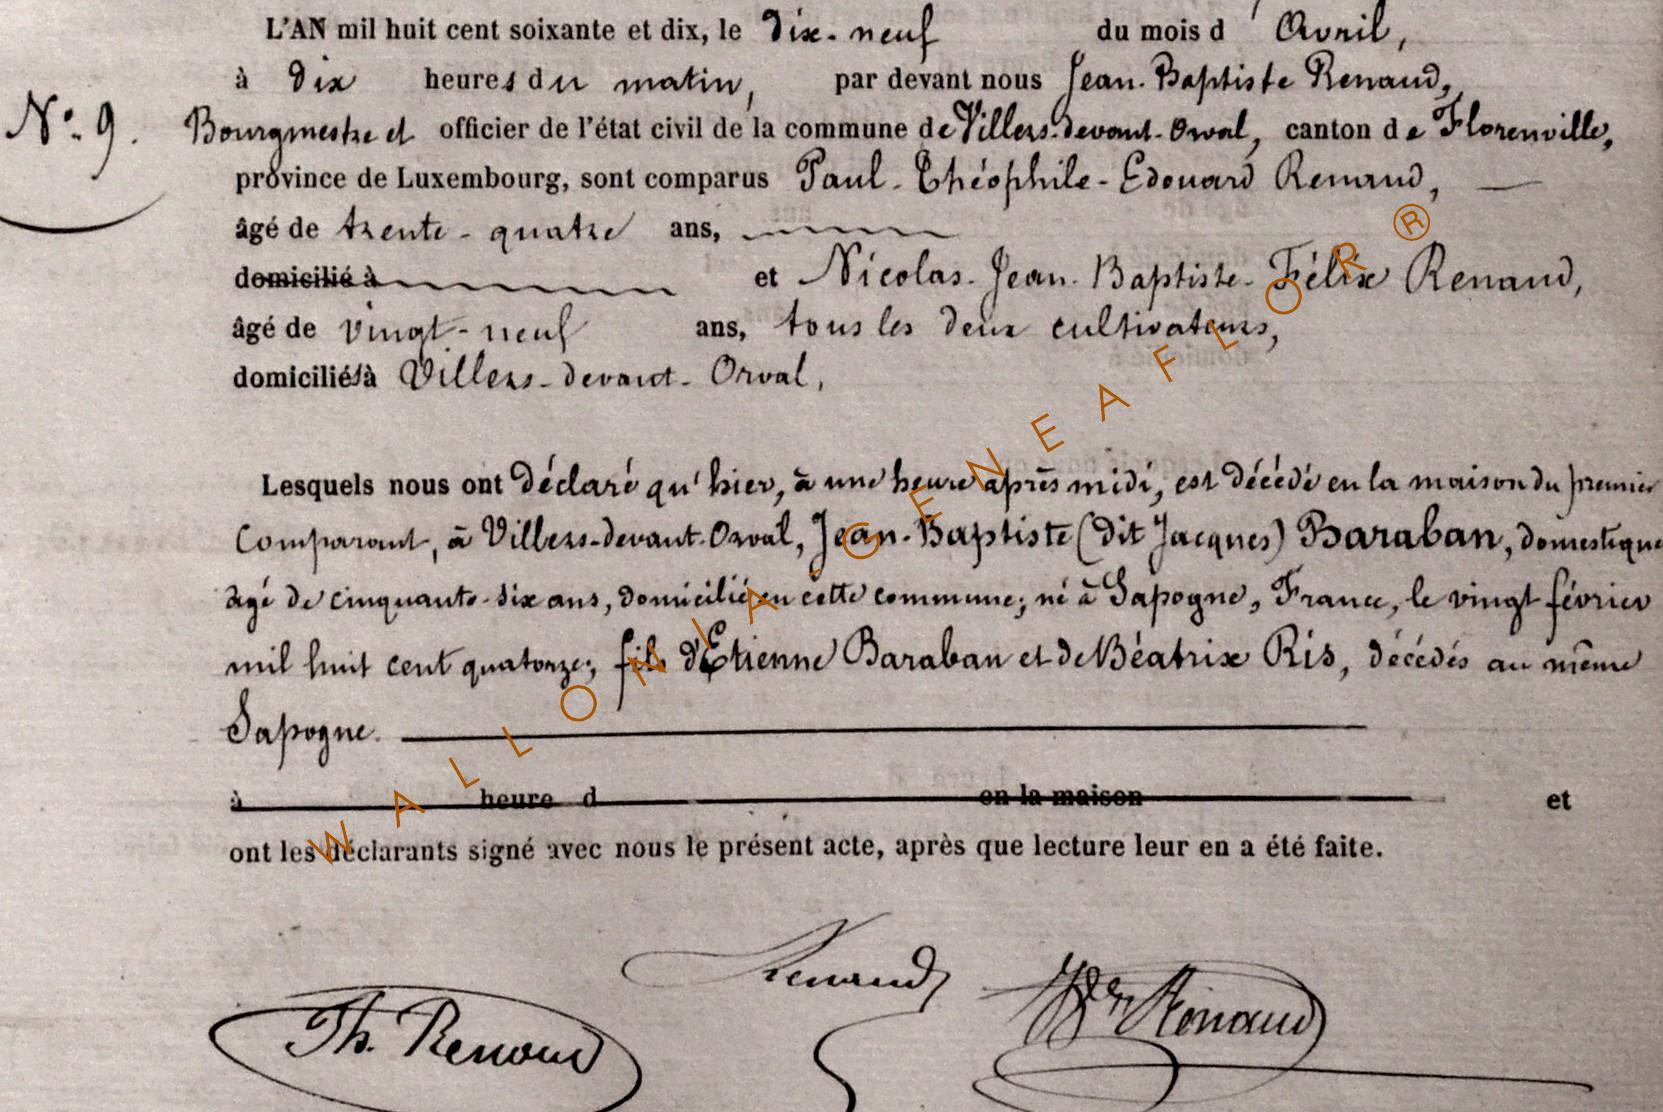 L'AN mil huit cent soixante et dix, le dix-neuf du mois d'Avril,
à dix heures du matin, par devant nous Jean-Baptiste Renaud,
N° 9. Bourgmestre et officier de l'état civil de la commune de Villers-devant-Orval, canton de Florenville,
province de Luxembourg, sont comparus Paul-Théophile-Edouard Renaud,
âgé de trente-quatre ans,
domicilié à et Nicolas-Jean-Baptiste-Félix Renaud,
âgé de vingt-neuf ans, tous les deux cultivateurs,
domiciliés à Villers-devant-Orval,
Lesquels nous ont déclaré qu'hier, à une heure après midi, est décédé en la maison du premier
Comparant, à Villers-devant-Orval, Jean-Baptiste (dit Jacques) Baraban, domestique
âgé de cinquante-six ans, domicilié en cette commune; né à Sapogne, France, le vingt février
mil huit cent quatorze; fils d'Etienne Baraban et de Béatrix Ris, décédés au même
Sapogne.
à heure d en la maison et
ont les déclarants signé avec nous le présent acte, après que lecture leur en a été faite.
Renaud
Th. Renaud
Renaud
WALLONIA-GENEAFLOR ®